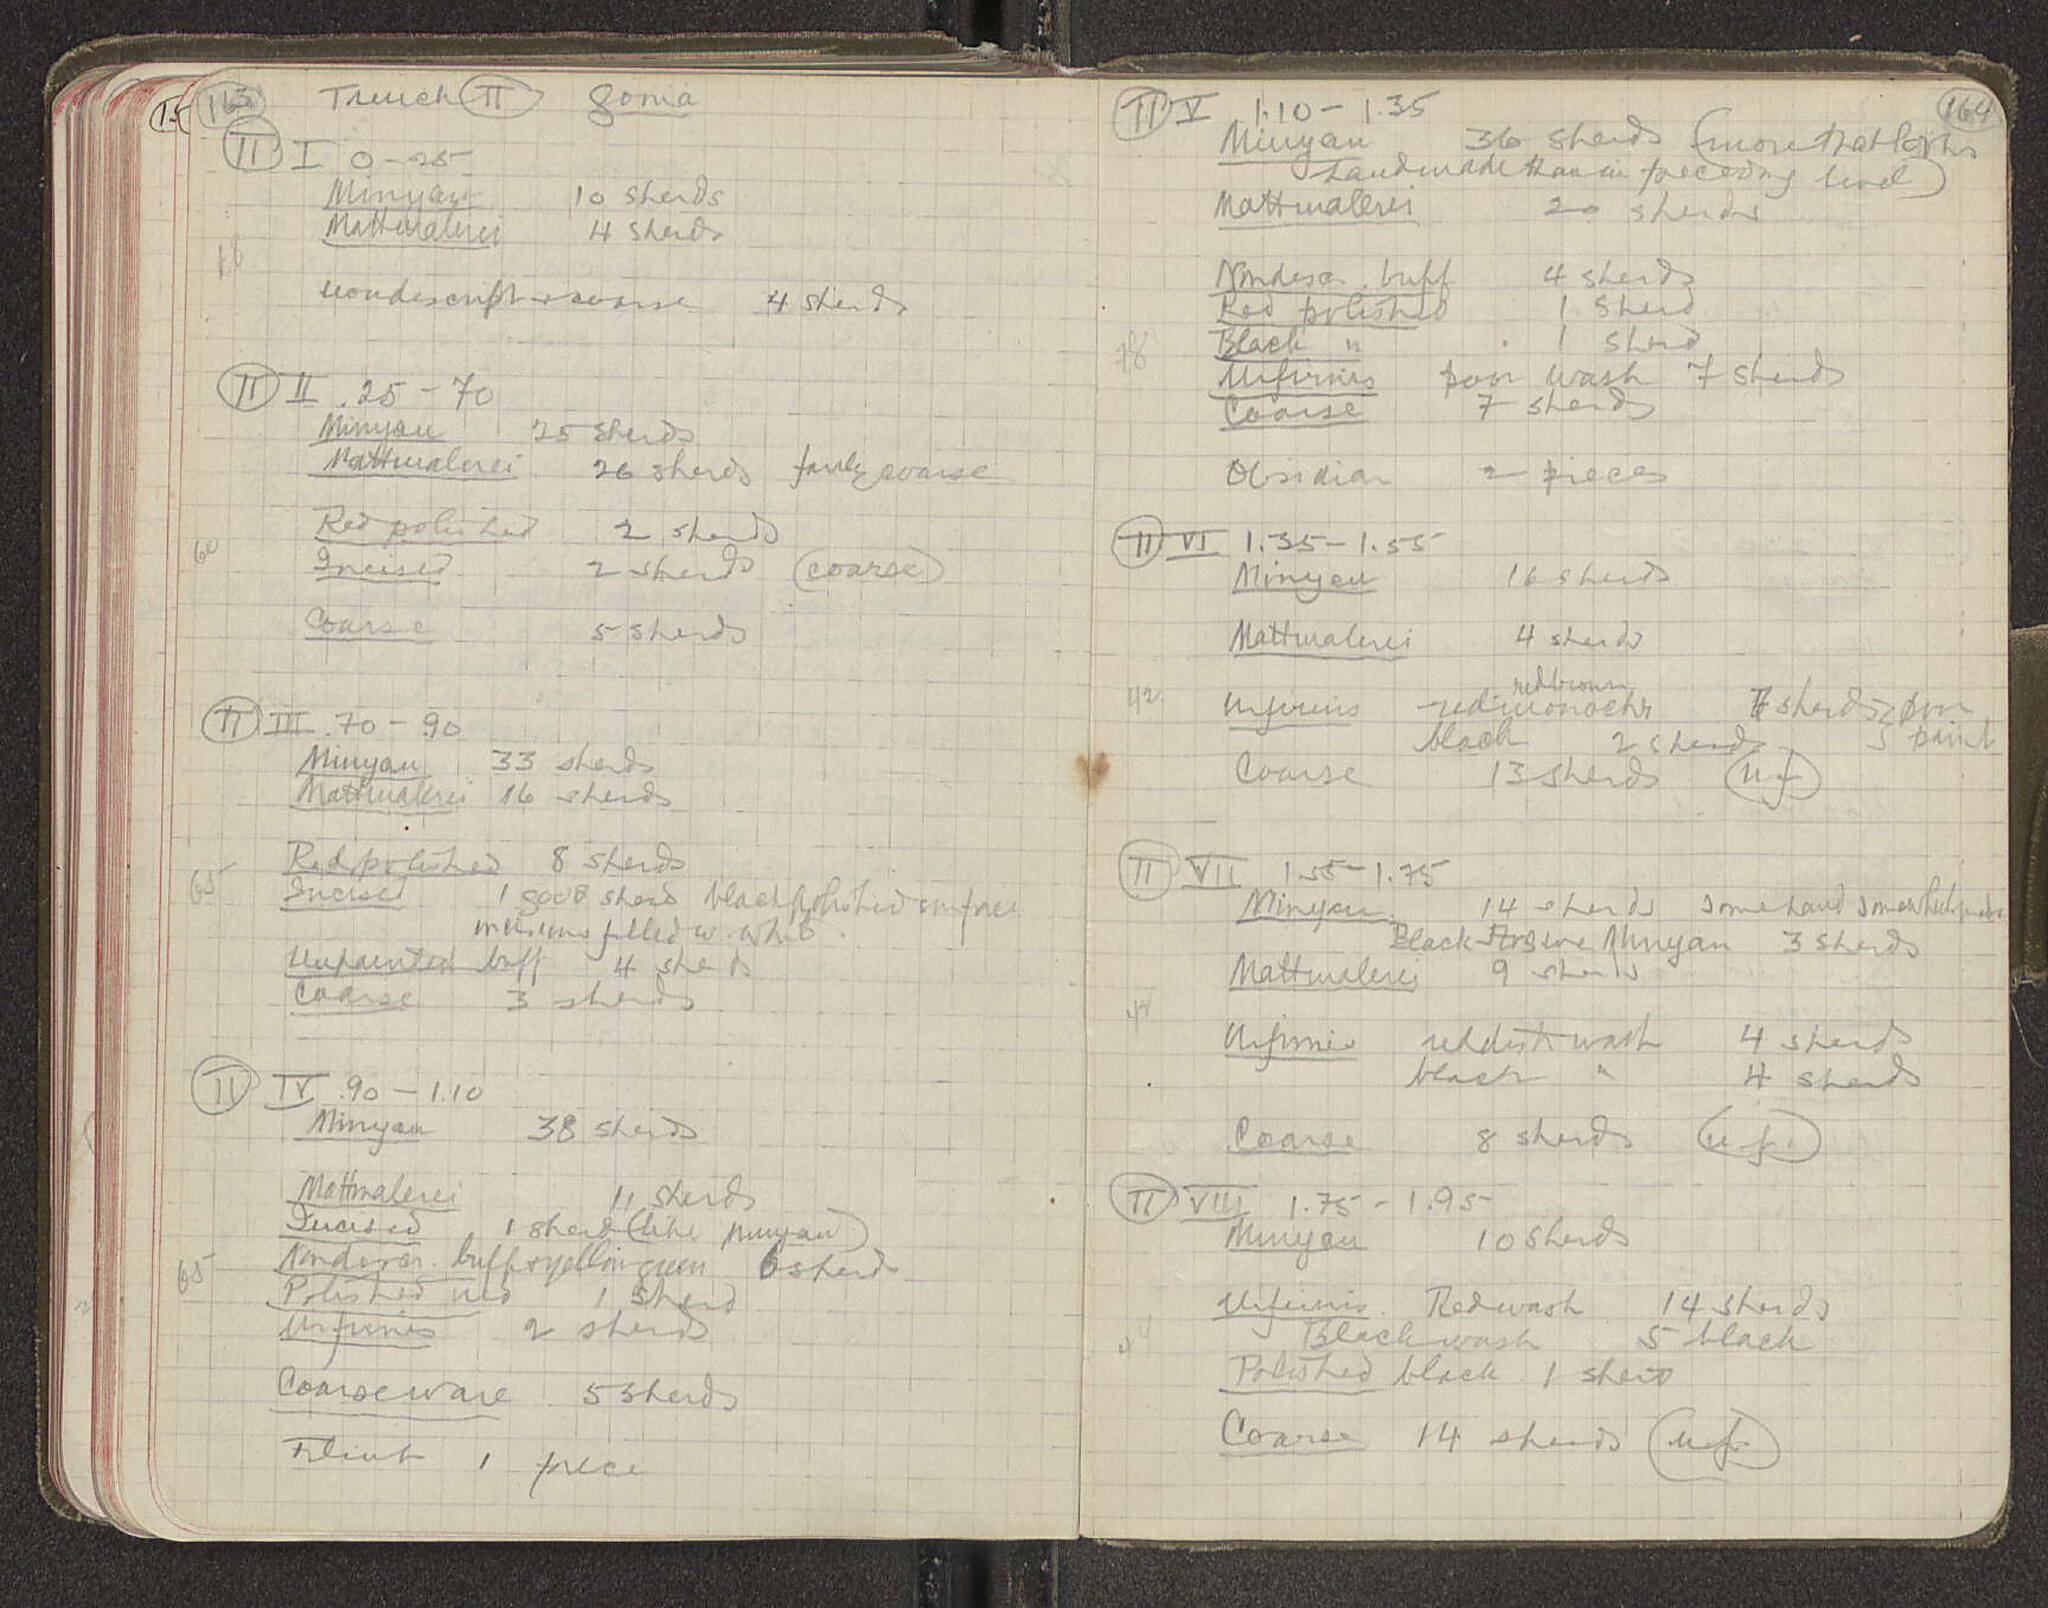 163 Trench II Gonia
II I 0-25
Minyan 10 sherds
Mattmalerei 4 sherds
18
nondescript + coarse 4 sherds
II II .25-70
Minyan 25 sherds
Mattmalerei 26 sherds fairly coarse
Red polished 2 sherds
60
Incised 2 sherds (coarse)
Coarse 5 sherds
II III .70-.90
Minyan 33 sherds
Mattmalerei 16 sherds
Red polished 8 sherds
65
Incised 1 good sherd black polished surface
incisions filled w. white.
Unpainted buff 4 sherds
Coarse 3 sherds
II IV .90-1.10
Minyan 38 sherds
Mattmalerei 11 sherds
Incised 1 sherd (like minyan)
Nondescr. buff + yellow green 6 sherds
65
Polished red 1 sherd
Urfirnis 2 sherds
Coarse ware 5 sherds
Flint 1 piece
164
II V 1.10-1.35
Minyan 36 sherds (more that looks
handmade than in preceding level)
Mattmalerei 20 sherds
Nondescr. buff 4 sherds
Red polished 1 sherd
78
Black " 1 sherd
Urfirnis poor wash 7 sherds
Coarse 7 sherds
Obsidian 2 pieces
II VI 1.35-1.55
Minyan 16 sherds
Mattmalerei 4 sherds
redbrown
42
Urfirnis red monochr 7 sherds } poor
black 2 sherds } paint
Coarse 13 sherds (u.f.)
II VII 1.55-1.75
Minyan 14 sherds some hand some wheelmade
Black Argive Minyan 3 sherds
Mattmalerei 9 sherds
Urfirnis reddish wash 4 sherds
black " 4 sherds
Coarse 8 sherds (u.f.)
II VIII 1.75-1.95
Minyan 10 sherds
Urfirnis. Red wash 14 sherds
Black wash 5 black
Polished black 1 sherd
Coarse 14 sherds (u.f.)